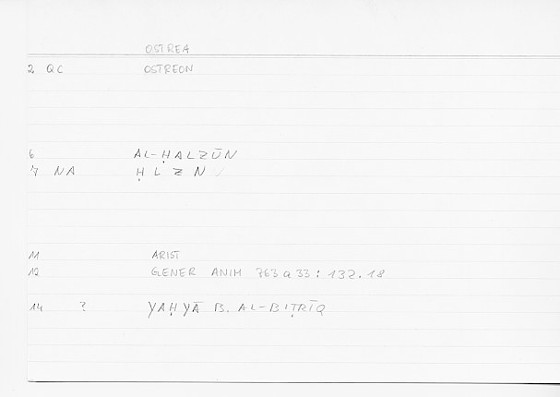 OSTREA
2 QC OSTREON
6 AL-ḤALZŪN
7 NA Ḥ L Z N
11 ARIST
12 GENER ANIM 763a33 : 132.18
14 ? YAḤYĀ B. AL-BIṬRĪQ